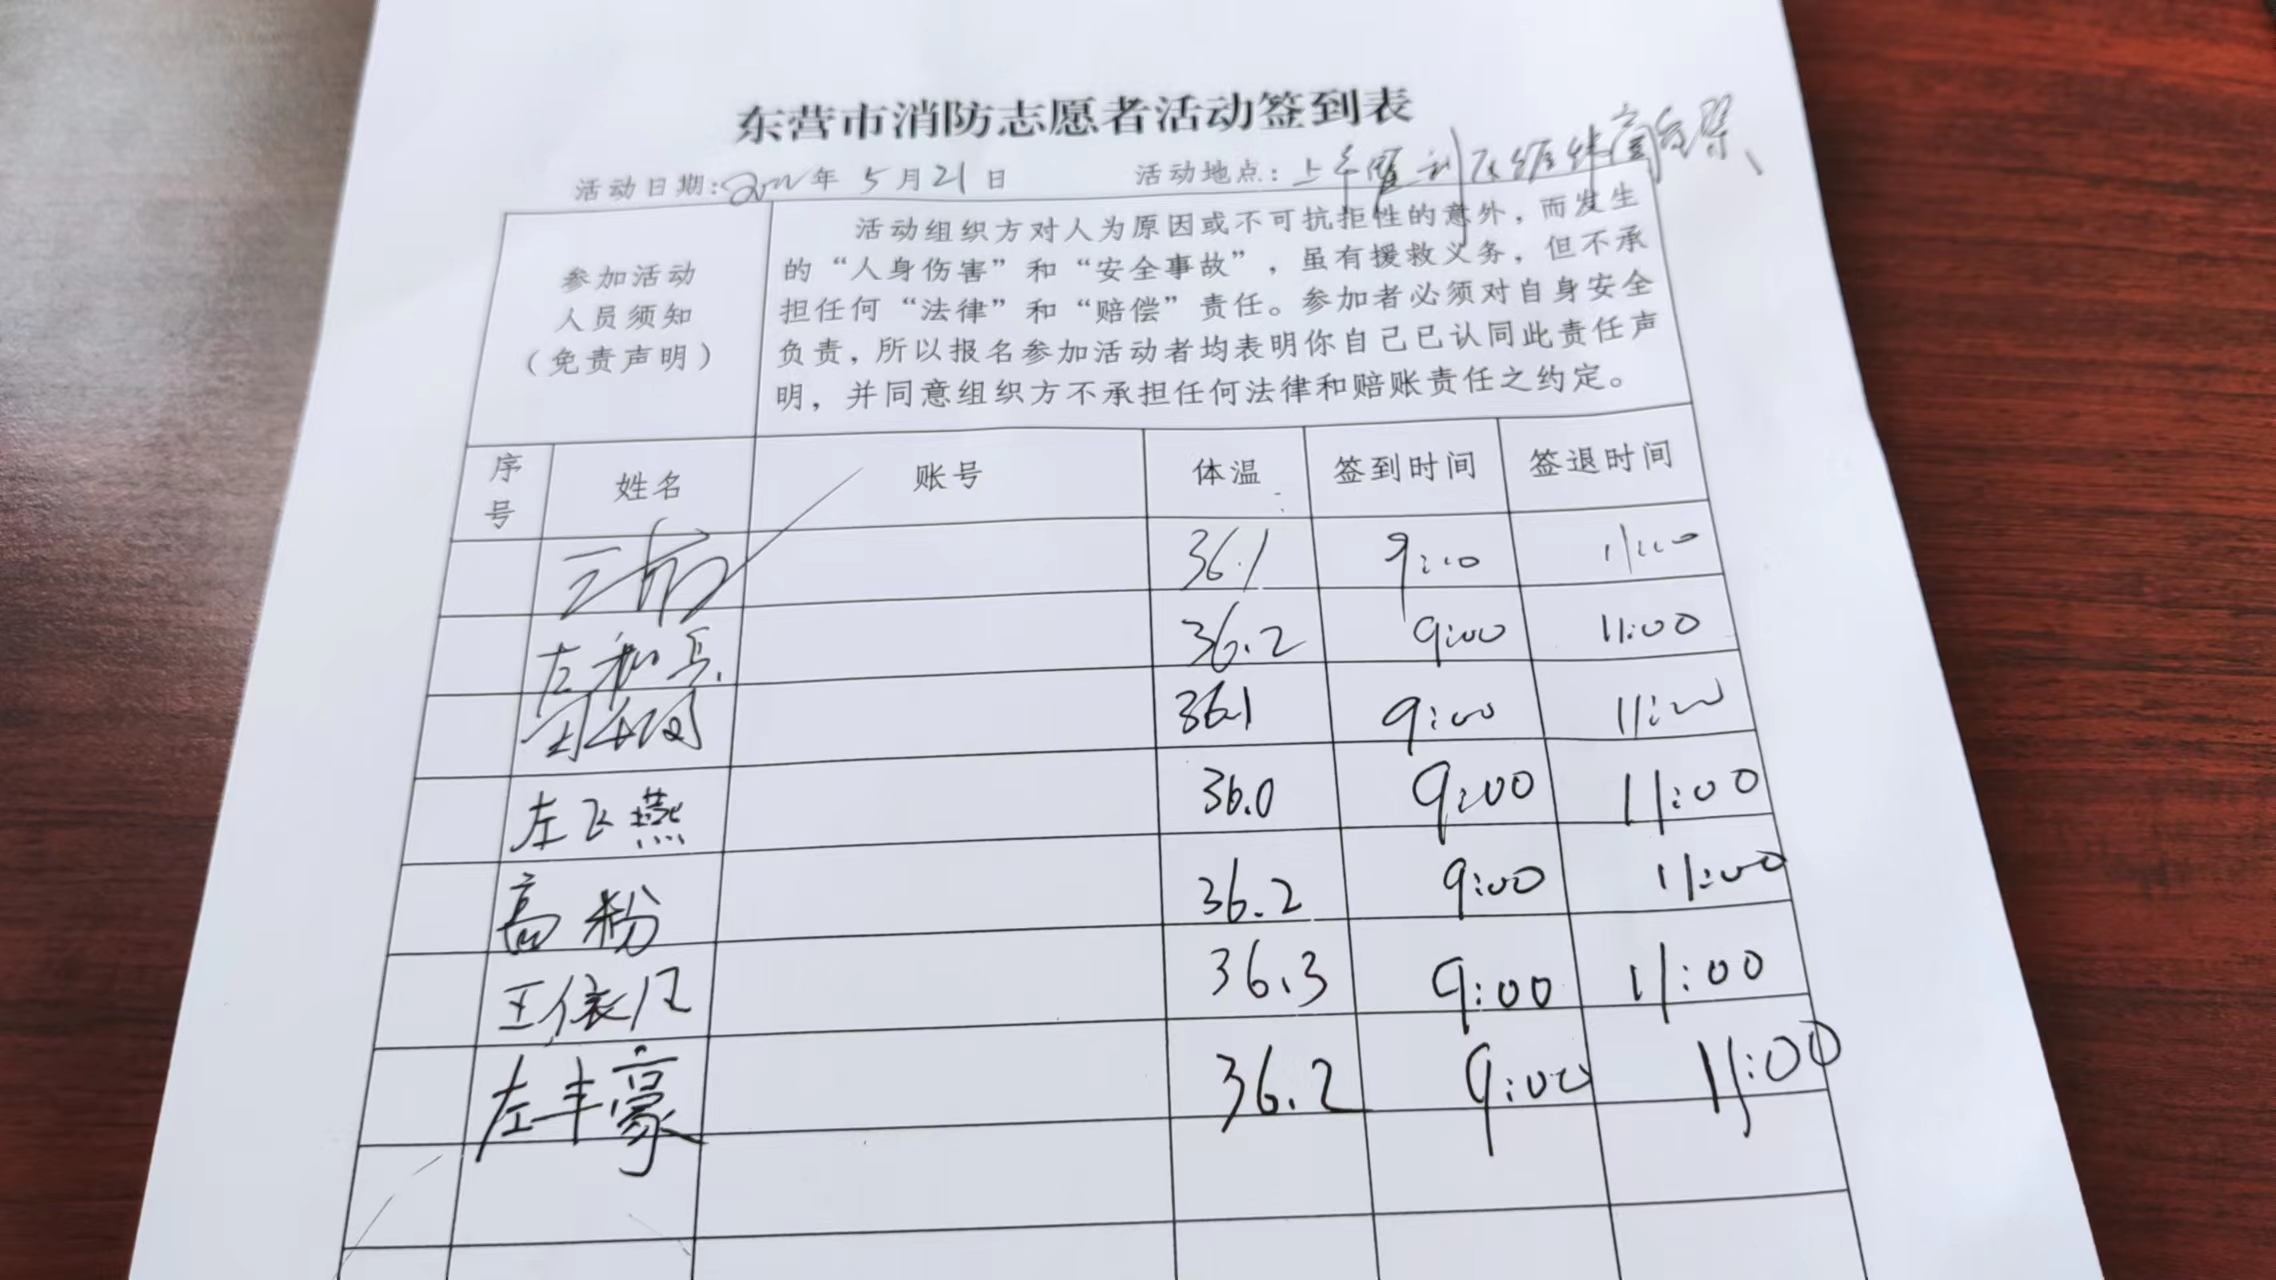 东营市消防志愿者活动签到表
活动日期:2022年 5月21日 活动地点:
参加活动
人员须知
（免责声明）
活动组织方对人为原因或不可抗拒性的意外，而发生
的“人身伤害”和“安全事故”，虽有援救义务，但不承
担任何“法律”和“赔偿”责任。参加者必须对自身安全
负责，所以报名参加活动者均表明你自己已认同此责任声
明，并同意组织方不承担任何法律和赔账责任之约定。
序号 姓名 账号 体温 签到时间 签退时间
36.1 9:00 11:00
36.2 9:00 11:00
36.1 9:00 11:00
左飞燕 36.0 9:00 11:00
高粉 36.2 9:00 11:00
王依凡 36.3 9:00 11:00
左丰豪 36.2 9:00 11:00